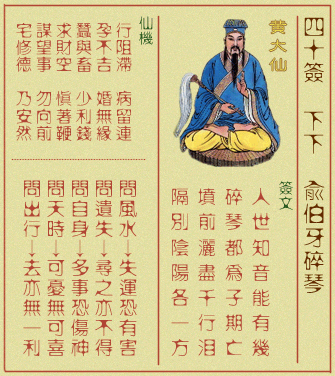 四十簽 下下 俞伯牙碎琴
黄大仙
簽文
人世知音能有幾
碎琴都爲子期亡
墳前灑盡千行泪
隔別陰陽各一方
仙機
行阻滯 病留連
孕不吉 婚無緣
蠶與畜 少利錢
求財空 慎著鞭
謀望事 勿向前
宅修德 乃安然
問風水→失運恐有害
問遺失→尋之亦不得
問自身→多事恐傷神
問天時→可憂無可喜
問出行→去亦無一利